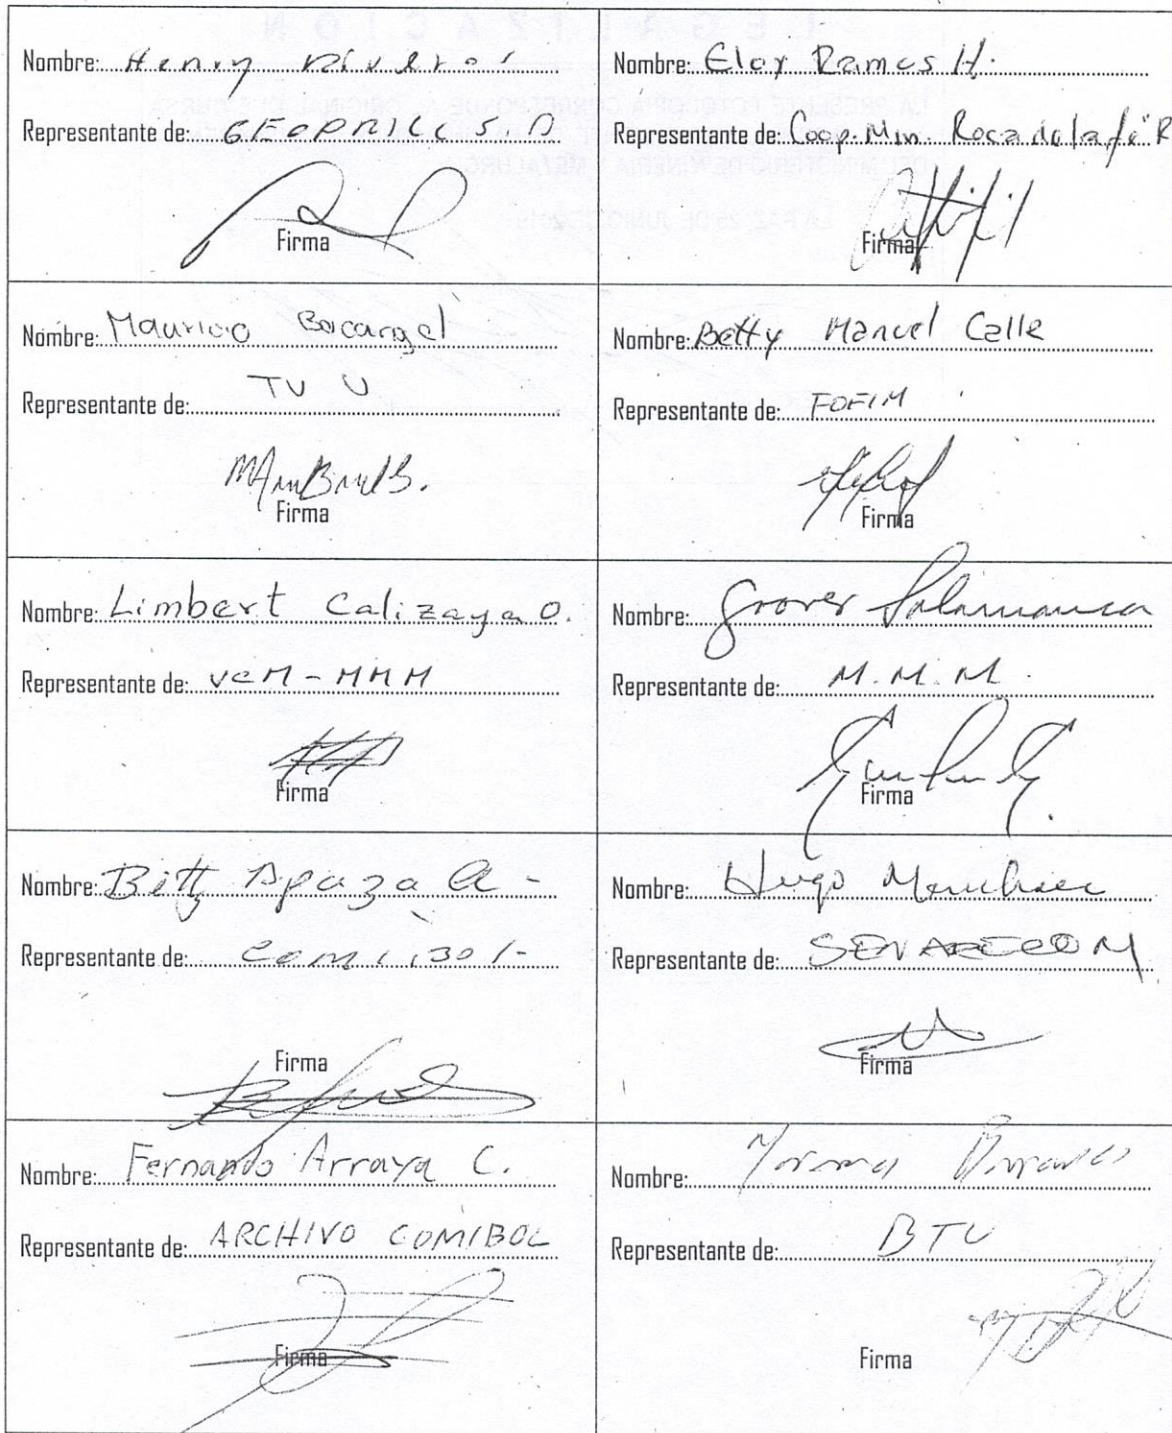 Nombre: Henry Riveros
Representante de: GEODRILL S.A
Firma
Nombre: Eloy Ramos H.
Representante de: Coop. Min. Roca de la fé "R
Firma
Nombre: Mauricio Bocangel
Representante de: TV U
Firma
Nombre: Betty Manuel Calle
Representante de: FOFIM
Firma
Nombre: Limbert Calizaya O.
Representante de: VCM-MMM
Firma
Nombre: Grover Salamanca
Representante de: M.M.M.
Firma
Nombre: Betty Apaza A-
Representante de: Comibol-
Firma
Nombre: Hugo
Representante de: SENARECOM
Firma
Nombre: Fernando Arraya C.
Representante de: ARCHIVO COMIBOL
Firma
Nombre:
Representante de: BTV
Firma